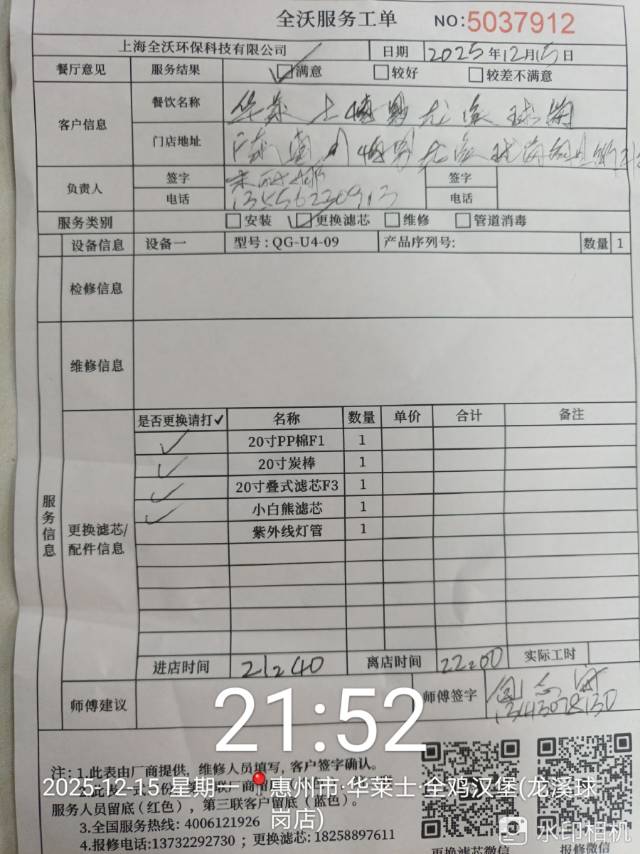 全沃服务工单 NO:5037912
上海全沃环保科技有限公司 日期 2025年12月15日
餐厅意见 服务结果 ☑满意 □较好 □较差不满意
客户信息 餐饮名称
门店地址
负责人 签字 签字
电话 电话
服务类别 □安装 ☑更换滤芯 □维修 □管道消毒
设备信息 设备一 型号:QG-U4-09 产品序列号: 数量 1
检修信息
维修信息
服务信息
更换滤芯/配件信息
是否更换请打✓ 名称 数量 单价 合计 备注
✓ 20寸PP棉F1 1
✓ 20寸炭棒 1
✓ 20寸叠式滤芯F3 1
✓ 小白熊滤芯 1
紫外线灯管 1
进店时间 21:40 离店时间 22:00 实际工时
师傅建议 师傅签字
21:52
注:1.此表由厂商提供,维修人员填写,客户签字确认。
2025-12-15 星期一 惠州市·华莱士·全鸡汉堡(龙溪球岗店)
服务人员留底(红色),第三联客户留底(蓝色)。
3.全国服务热线:4006121926
4.报修电话:13732292730;更换滤芯:18258897611
更换滤芯微信 报修微信
水印相机